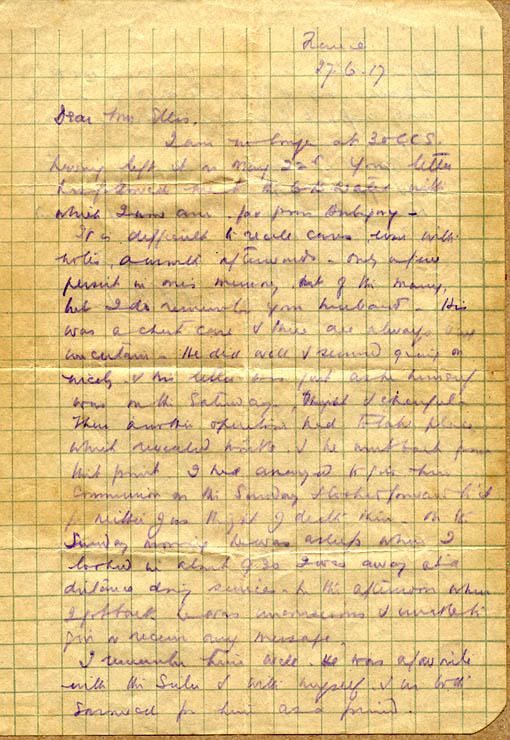 France
27.6.17
Dear Mrs Ellis.
I am no longer at 30 CCS
having left it on May 22nd. Your letter
has followed me to the with
which I am now far from Aubigny –
It is difficult to recall cases even with
notes a month afterwards – only a few
persist in one's memory out of the many,
but I do remember your husband – His
was a chest case & these are always
uncertain – He did well & seemed going on
nicely, & his letter was just as he himself
was on the Saturday. Bright & cheerful –
Then another operation had to take place
which revealed trouble. & he went back from
that point. I had arranged to give him
Communion on the Sunday & looked forward to it
for neither of us thought of death then. On the
Sunday morning he was asleep when I
looked in about 9.30 I was away at a
distance doing services – In the afternoon when
I got back he was unconscious & unable to
give or receive any message.
I remember him well. He was a favourite
with the Sister & with myself. & we both
sorrowed for him as a friend.